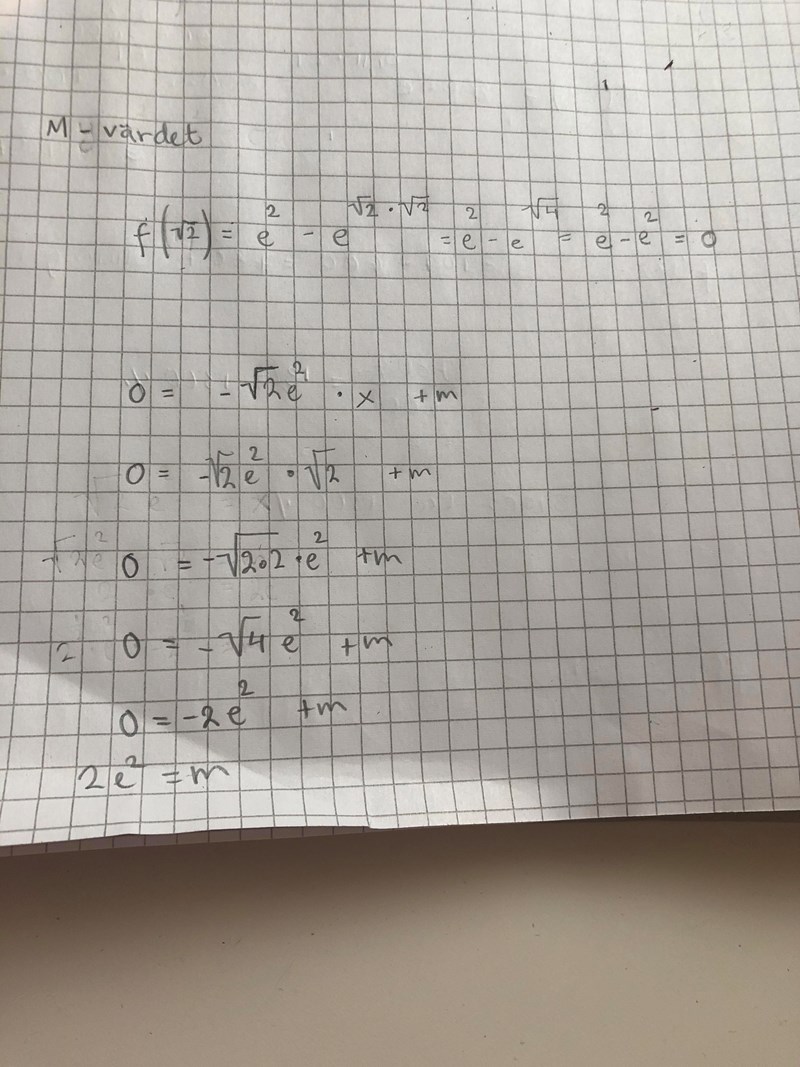 M-värdet
f(√2) = e² - e^(√2·√2) = e² - e^√4 = e² - e² = 0
0 = -√2e² · x + m
0 = -√2e² · √2 + m
0 = -√2·2 · e² + m
0 = -√4 e² + m
0 = -2e² + m
2e² = m